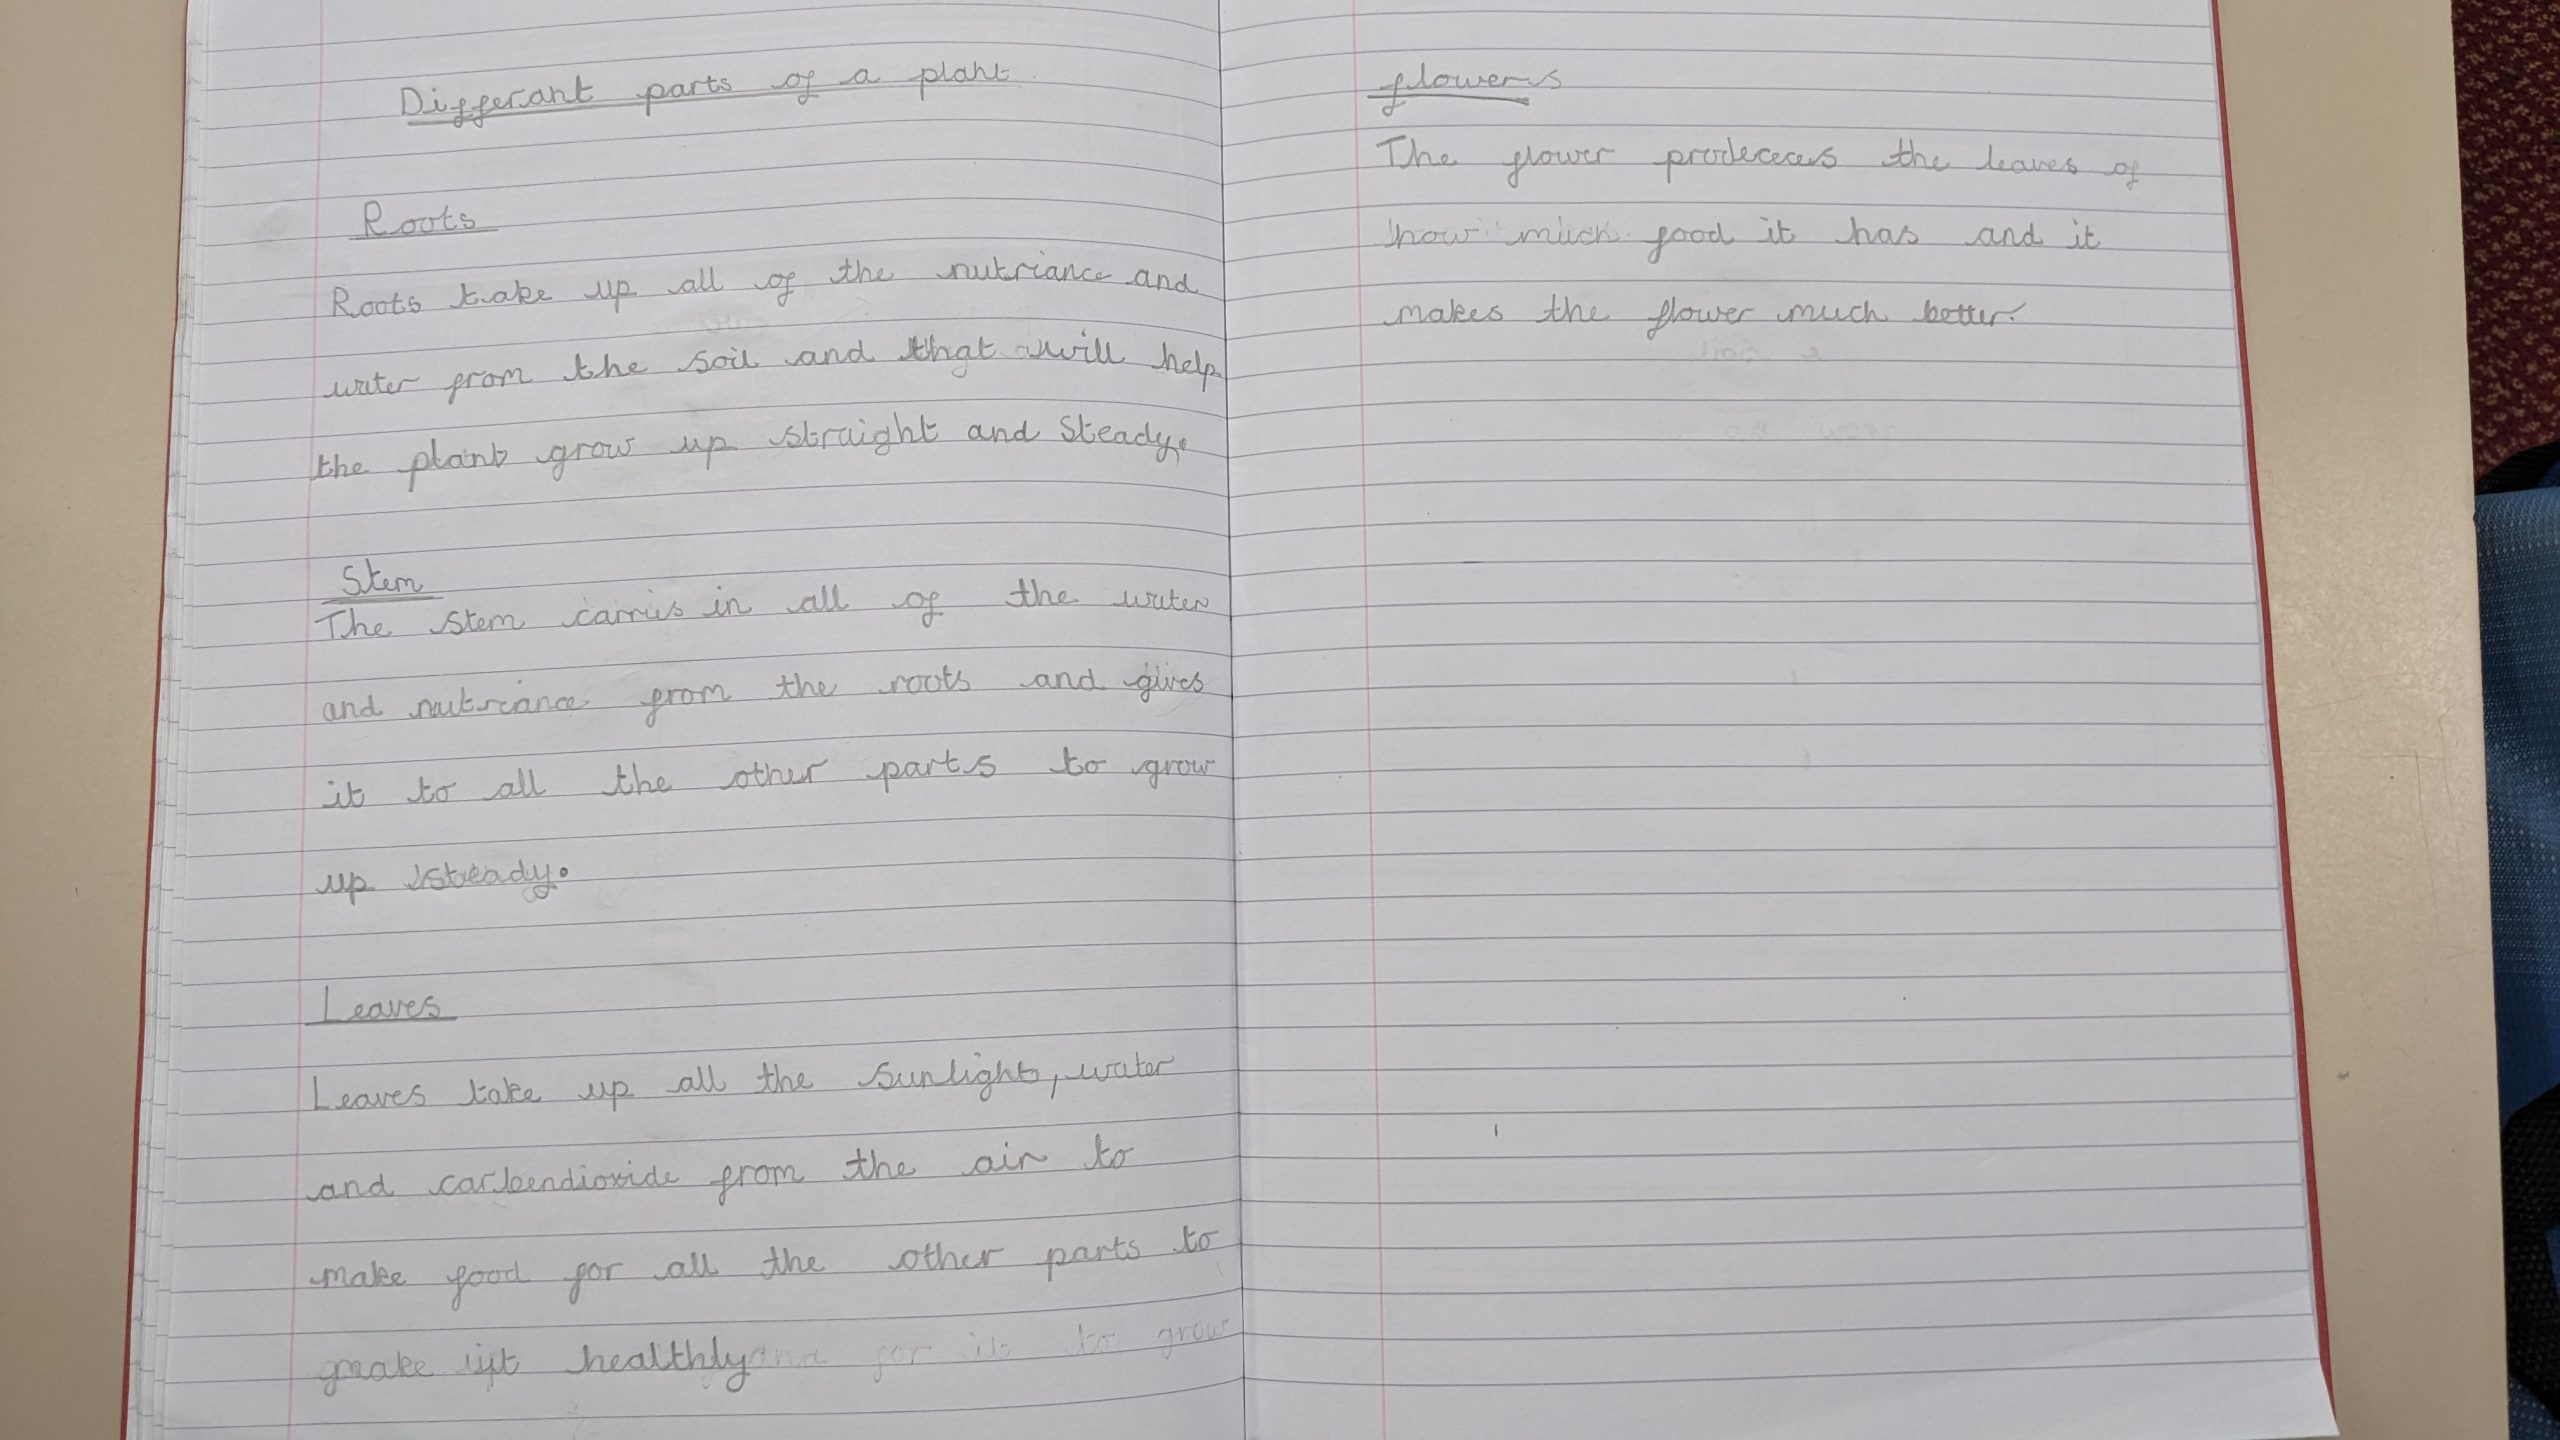 Differant parts of a plant
Roots
Roots take up all of the nutriance and
water from the soil and that will help
the plant grow up straight and steady.
Stem
The stem carries in all of the water
and nutriance from the roots and gives
it to all the other parts to grow
up steady.
Leaves
Leaves take up all the sunlight, water
and carbendioxide from the air to
make food for all the other parts to
make it healthly and for it to grow
flowers
The flower the leaves of
how much food it has and it
makes the flower much better.